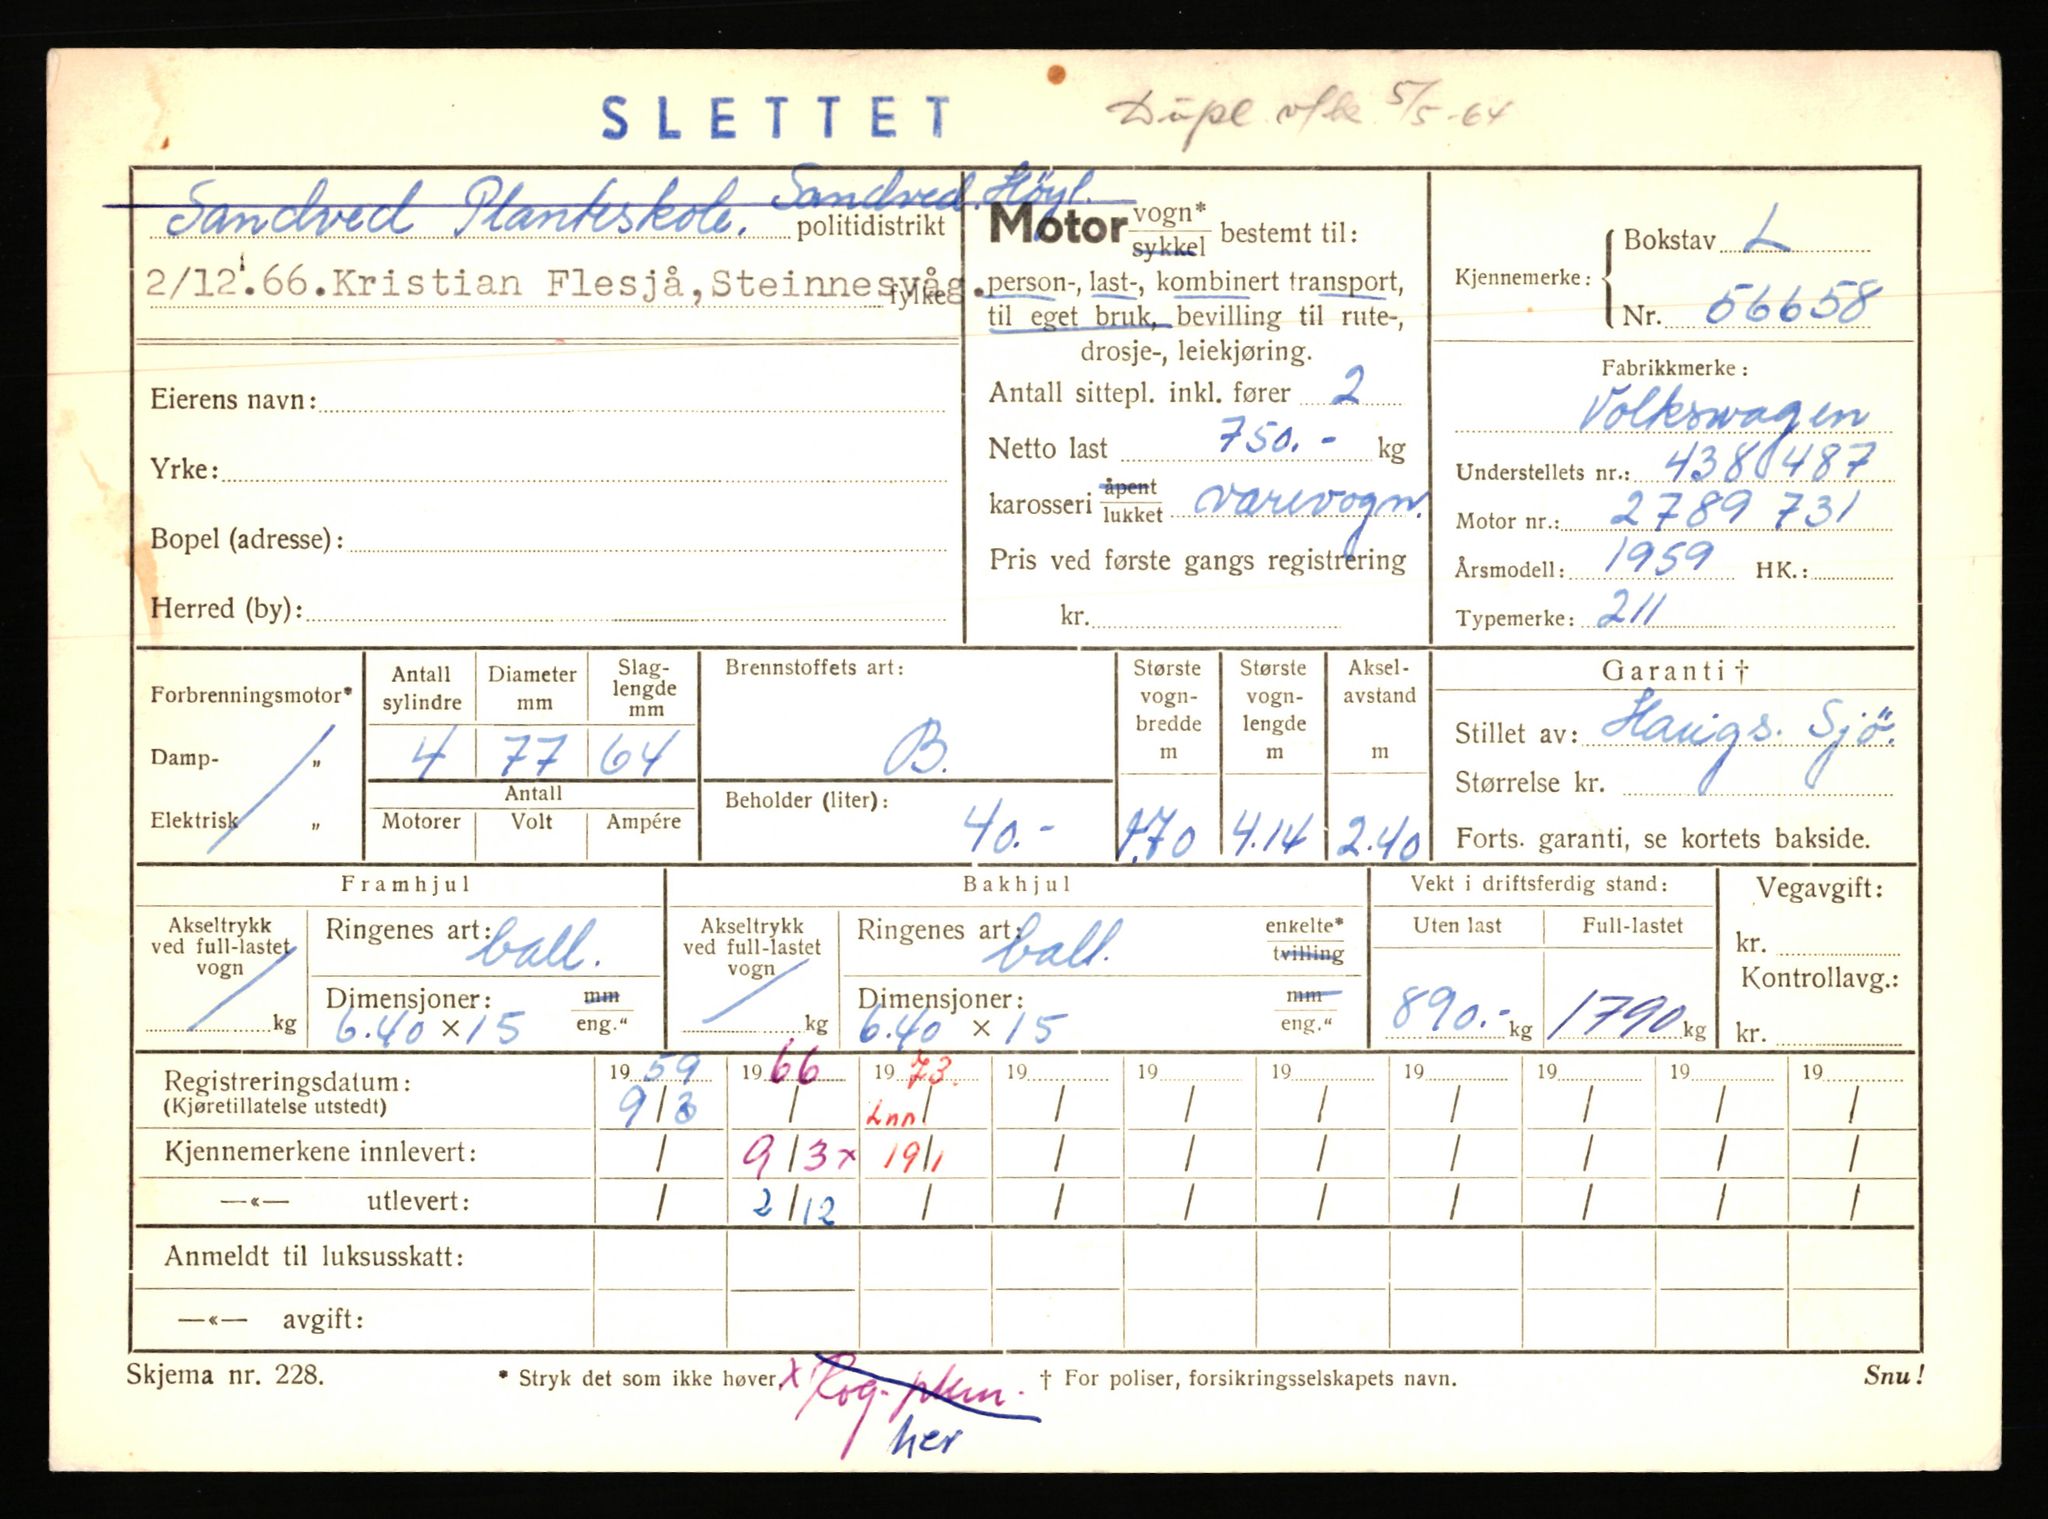 SLETTET
Dupl. v/k 5/5-64
Sandved Planteskole. Sandved. Höyl.
politidistrikt
2/12.66.Kristian Flesjå,Steinnesvåg.
fylke
Eierens navn:
Yrke:
Bopel (adresse):
Herred (by):
Motor vogn* sykkel bestemt til:
person-, last-, kombinert transport,
til eget bruk, bevilling til rute-,
drosje-, leiekjøring.
Antall sittepl. inkl. fører 2
Netto last 750.- kg
karosseri åpent lukket varevogn.
Pris ved første gangs registrering
kr.
Kjennemerke: Bokstav L
Nr. 56658
Fabrikkmerke:
Volkswagen
Understellets nr.: 438487
Motor nr.: 2789 731
Årsmodell: 1959 HK.:
Typemerke: 211
Forbrenningsmotor*
Damp- „
Elektrisk „
Antall sylindre
Diameter mm
Slag-lengde mm
4 77 64
Antall
Motorer Volt Ampére
Brennstoffets art:
B.
Beholder (liter):
40.-
Største vogn-bredde m
1.70
Største vogn-lengde m
4.14
Aksel-avstand m
2.40
Garanti †
Stillet av: Haugs. Sjö.
Størrelse kr.
Forts. garanti, se kortets bakside.
Framhjul
Akseltrykk
ved full-lastet
vogn
kg
Ringenes art: ball.
Dimensjoner: mm
6.40 × 15 eng."
Bakhjul
Akseltrykk
ved full-lastet
vogn
kg
Ringenes art: ball. enkelte* tvilling
Dimensjoner: mm
6.40 × 15 eng."
Vekt i driftsferdig stand:
Uten last Full-lastet
890.- kg 1790 kg
Vegavgift:
kr.
Kontrollavg.:
kr.
Registreringsdatum: 1959 1966 1973. 19 19 19 19 19 19 19
(Kjøretillatelse utstedt) 9/3 / Lnn/ / / / / / / /
Kjennemerkene innlevert: / 9/3x 19/1 / / / / / / /
—«— utlevert: / 2/12 / / / / / / / /
Anmeldt til luksusskatt:
—«— avgift:
Skjema nr. 228. * Stryk det som ikke høver. † For poliser, forsikringsselskapets navn. Snu!
x Rog.
her